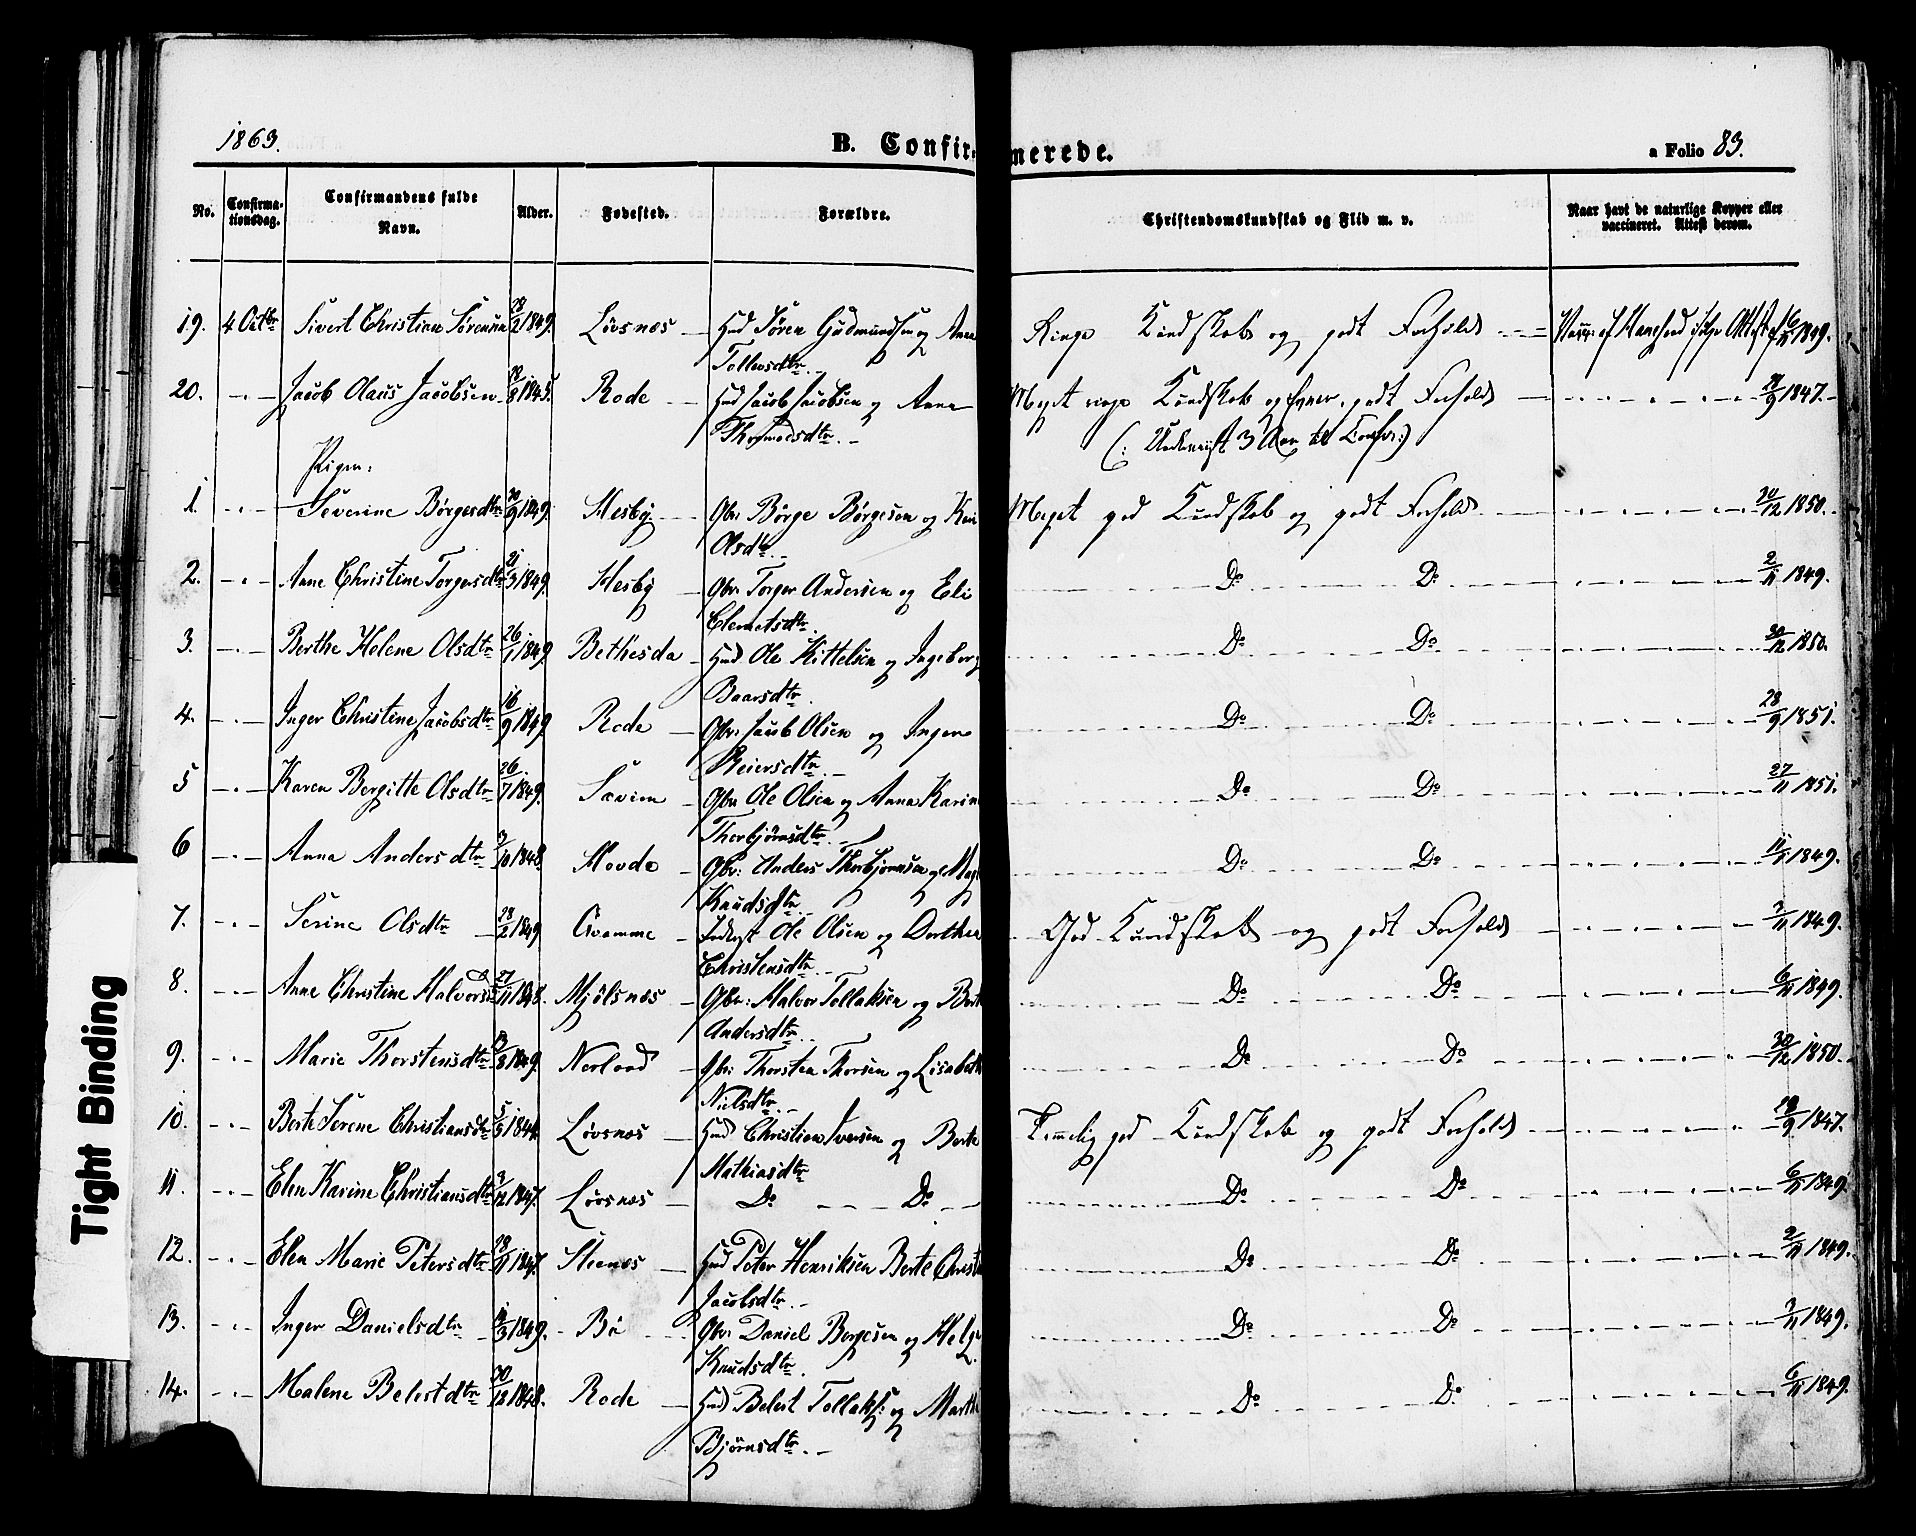 1863.
B. Confirmerede.
a Folio 83.
No. Confirmationsdag. Confirmandens fulde Navn. Alder. Fødested. Forældre. Christendomskundskab og Flid m. v. Naar havt de naturlige Kopper eller vaccineret. Attest derom.
19. 4 Octbr Sivert Christian Sørensen 28/2 1849. Løvsnæs Hmd Søren Gudmundsen og Anne Ringe Kundskab og godt Forhold 16/11 1849.
Tollevsdtr.
20. Jacob Olaus Jacobsen 28/8 1845. Rode Hmd Jacob Jacobsen og Anne Meget ringe Kundskab og Evner, godt Forhold 21/9 1847.
Thormodsdtr. (: Underviist 3 Aar til Confir:)
Piger:
1. Severine Børgesdtr 30/9 1849. Mesby Gbr: Børge Børgesen og Kari Meget god Kundskab og godt Forhold 30/12 1850.
Olsdtr.
2. Anne Christine Torgersdtr 21/3 1849. Mesby Gbr: Torger Andersen og Eli Do Do 2/11 1849.
Clemetsdtr.
3. Berthe Helene Olsdtr 26/1 1849 Bethesda Hmd Ole Kittelsen og Ingeborg Do Do 30/12 1850.
Baarsdtr.
4. Inger Christine Jacobsdtr 16/9 1849 Rode Gbr: Jacob Olsen og Inger Do Do 28/9 1851.
Reiersdtr.
5 Karen Bergitte Olsdtr 26/7 1849. Sævien Gbr Ole Olsen og Anna Karine Do Do 27/11 1851.
Thorbjørnsdtr.
6 Anna Andersdtr 3/10 1848. Hovde Gbr: Anders Thorbjørnsen og Do Do 11/11 1849.
Knudsdtr.
7. Serine Olsdtr 28/2 1849 Qvamme Inderst Ole Olsen og Dorthea God Kundskab og godt Forhold 2/11 1849.
Christensdtr.
8. Anne Christine Halvorsd 27/11 1848. Mjølsnæs Gbr: Halvor Tollaksen og Berte Do Do 6/11 1849.
Andersdtr.
9. Marie Thorstensdtr 13/8 1849. Nerland Gbr: Thorsten Thorsen og Lisabeth Do Do 30/12 1850.
Nielsdtr.
10. Berte Serene Christiansdtr 5/5 1844. Løvsnæs Hmd Christian Iversen og Berte Temmelig god Kundskab og godt Forhold 18/9 1847.
Mathiasdtr
11. Elen Karine Christiansdtr 2/12 1847. Løvsnæs Do Do Do Do 6/11 1849.
12. Elen Marie Petersdtr 28/11 1847. Steenæs Hmd Peter Henriksen Berte Christ Do Do 2/11 1849.
Jacobsdtr.
13. Inger Danielsdtr 11/3 1849. Bø Gbr: Daniel Børgesen og Helge Do Do 2/11 1849.
Knudsdtr.
14. Malene Belestdtr 30/12 1848. Rode Hmd Belest Tollaks: og Marthe Do Do 6/11 1849.
Bjørnsdtr.
Tight Binding